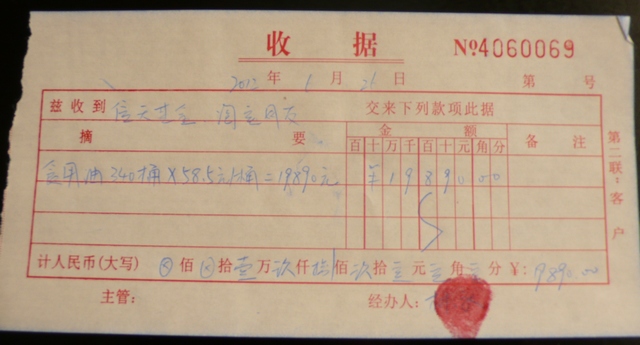 收据
№4060069
2012年 月 日 第 号
兹收到 信天基金、淘宝网友 交来下列款项此据
摘要 金额 备注
百十万千百十元角分
食用油340桶×58.5元/桶=19890元 ¥19890.00
计人民币(大写) ⊗佰⊗拾壹万玖仟捌佰 拾 元 角 分 ¥:19890.00
主管: 经办人:
第二联:客户